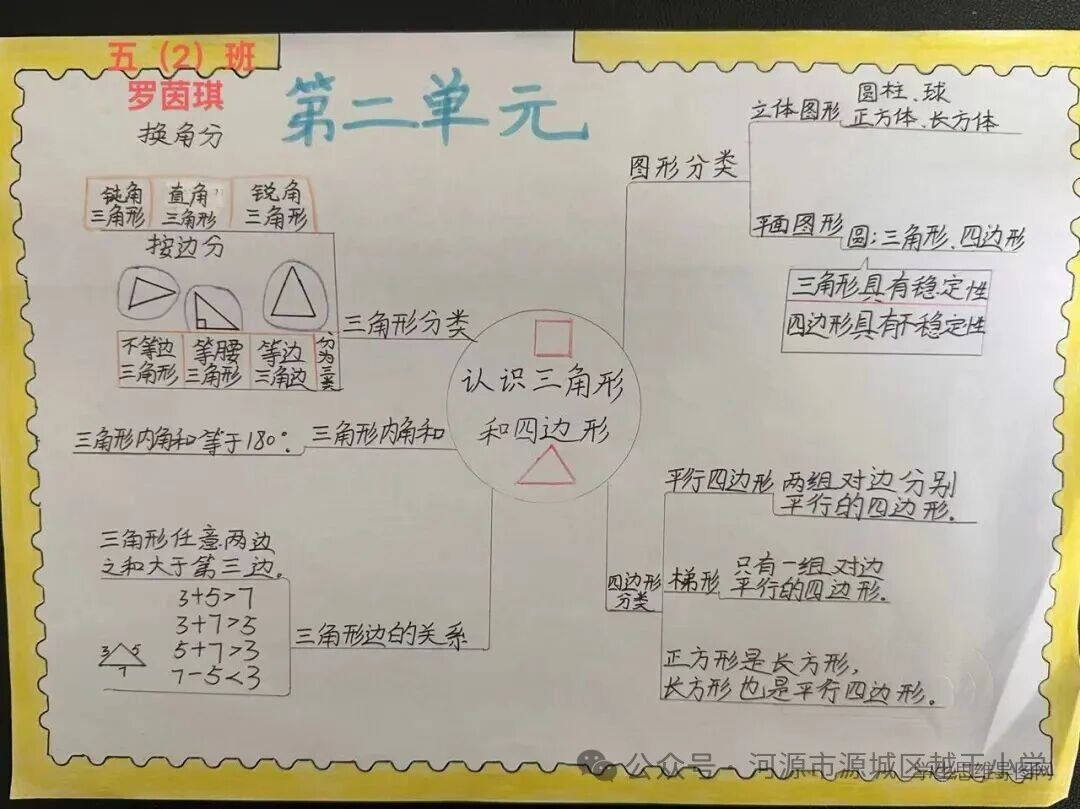 五（2）班
罗茵琪
第二单元
换角分
钝角
三角形
直角
三角形
锐角
三角形
按边分
不等边
三角形
等腰
三角形
等边
三角边
分为三类
三角形分类
三角形内角和等于180°.
三角形内角和
三角形任意两边
之和大于第三边。
3+5>7
3+7>5
5+7>3
7-5<3
3
5
7
三角形边的关系
认识三角形
和四边形
图形分类
立体图形
圆柱、球
正方体、长方体
平面图形
圆;三角形、四边形
三角形具有稳定性
四边形具有不稳定性
四边形
分类
平行四边形
两组对边分别
平行的四边形.
梯形
只有一组对边
平行的四边形.
正方形是长方形,
长方形也是平行四边形。
公众号·河源市源城区越王小学